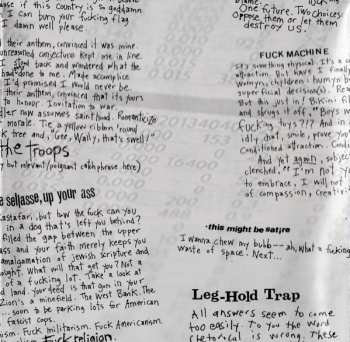 use if this country is so goddamn
I can burn your fucking flag
I damn well please.
their anthem, convinced it was mine.
unreasoned conjecture kept me in line.
I step back and wondered what the
had done to me. Made accomplice
I'd promised I would never be.
their anthem, convinced that it's yours
to honour. Invitation to war.
ller now assumes sainthood. Romanticize
morale. Tie a yellow ribbon 'round
k tree and, "Gee, Wally, that's swell!"
the Troops
y but relevant/poignant catchphrase here)
e seljasse, up your ass
astafari, but how the fuck can you
in a dog that's left you behind?
filled the gap between the upper
ass and your faith merely keeps you
amalgamation of jewish scripture and
ought. What will that get you? Not a
of a fucking lot. Take a look at
d land. Your seed is that gun in your
Zion's a minefield. The West Bank. The
... soon to be parking lots for American
fascist cops.
ism. Fuck militarism. Fuck Americanism
Fuck religion.
One future. Two choices
oppose them or let them
destroy us.
FUCK MACHINE
say something physical. It's a
attraction. But have I finally
superficial decision(s). Rea
But this just in! Bikini fil
and shrugs it off. "Boys w
Fucking, toys?!? And in
idly chat, smile, prove your
Conditioned attraction. Condi
And yet again, subjec
clenched. "I'm not y
to embrace. I will not
of compassion, creati
this might be satire
I wanna chew my bubb— ah, what a fucking
waste of space. Next...
Leg-Hold Trap
All answers seem to come
too easily. To you the word
rhetorical is wrong. These